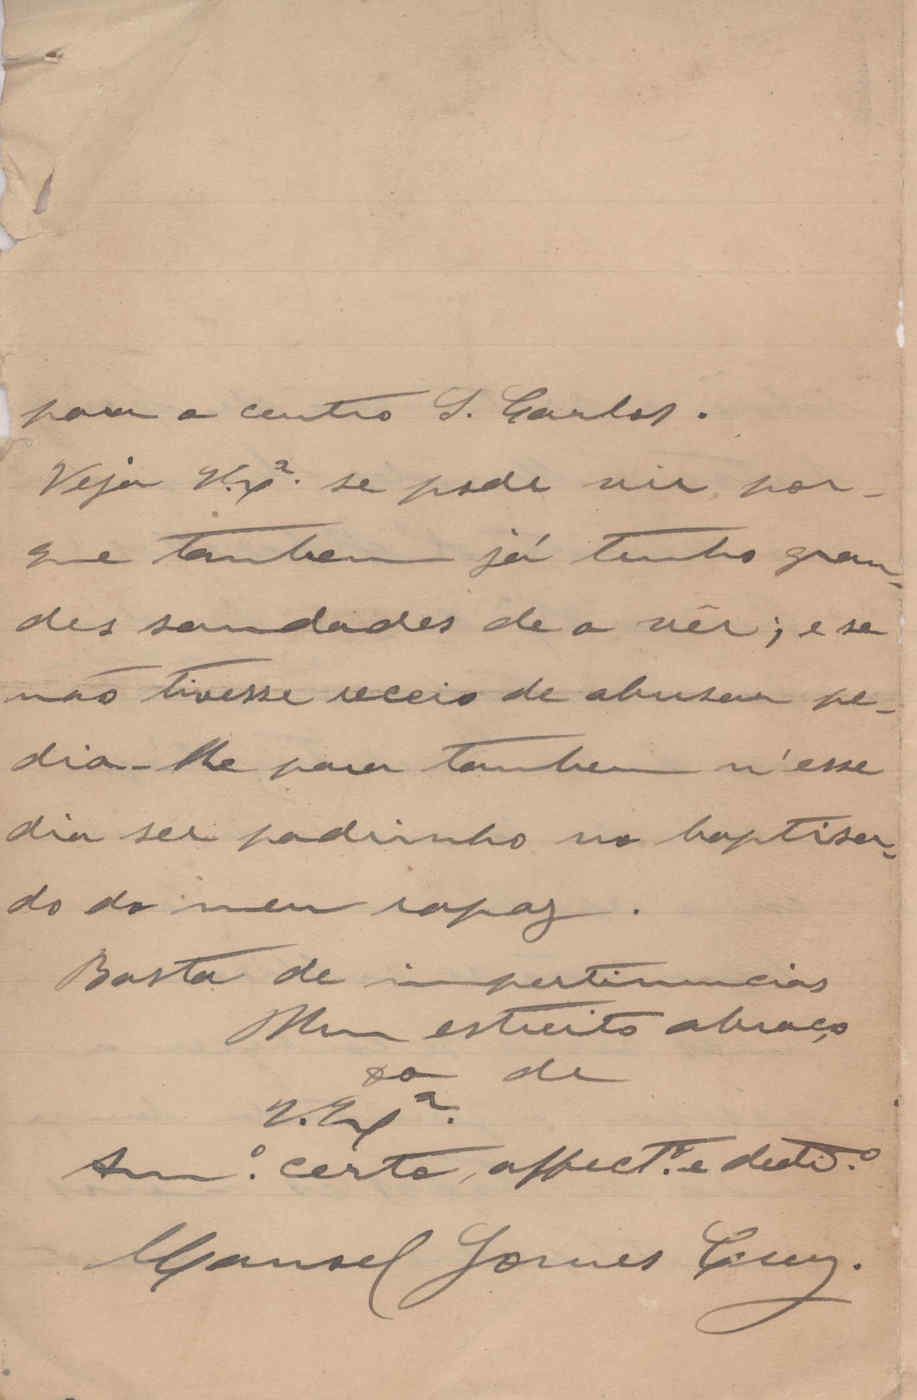 para o centro S. Carlos.
Veja V. Exª. se pode vir, por-
que tambem já tenho gran-
des saudades de o vêr; e se
não tivesse receio de abusar pe-
dia-lhe para tambem n'esse
dia ser padrinho no baptisa-
do do meu rapaz.
Basta de impertinencias
Um estreito abraço
de
V. Exª.
Amº. certo, affectº. e dedº.
Manoel Gomes Cruz.